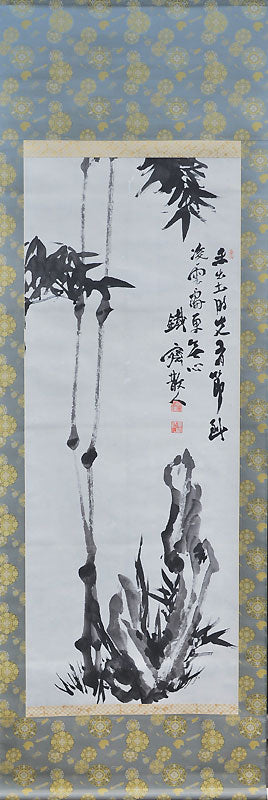 未出土时先有節到
凌雲霄更無心
鐵齋散人